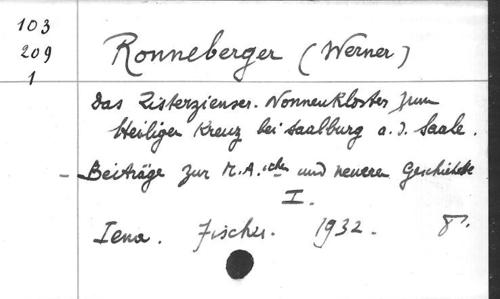 103
209
1
Ronneberger (Werner)
Das Zisterzienser. Nonnenkloster zum
Heiligen Kreuz bei Saalburg a. d. Saale.
- Beiträge zur M.A.ichen und neueren Geschichte
I.
Iena. Fischer. 1932. 8°.